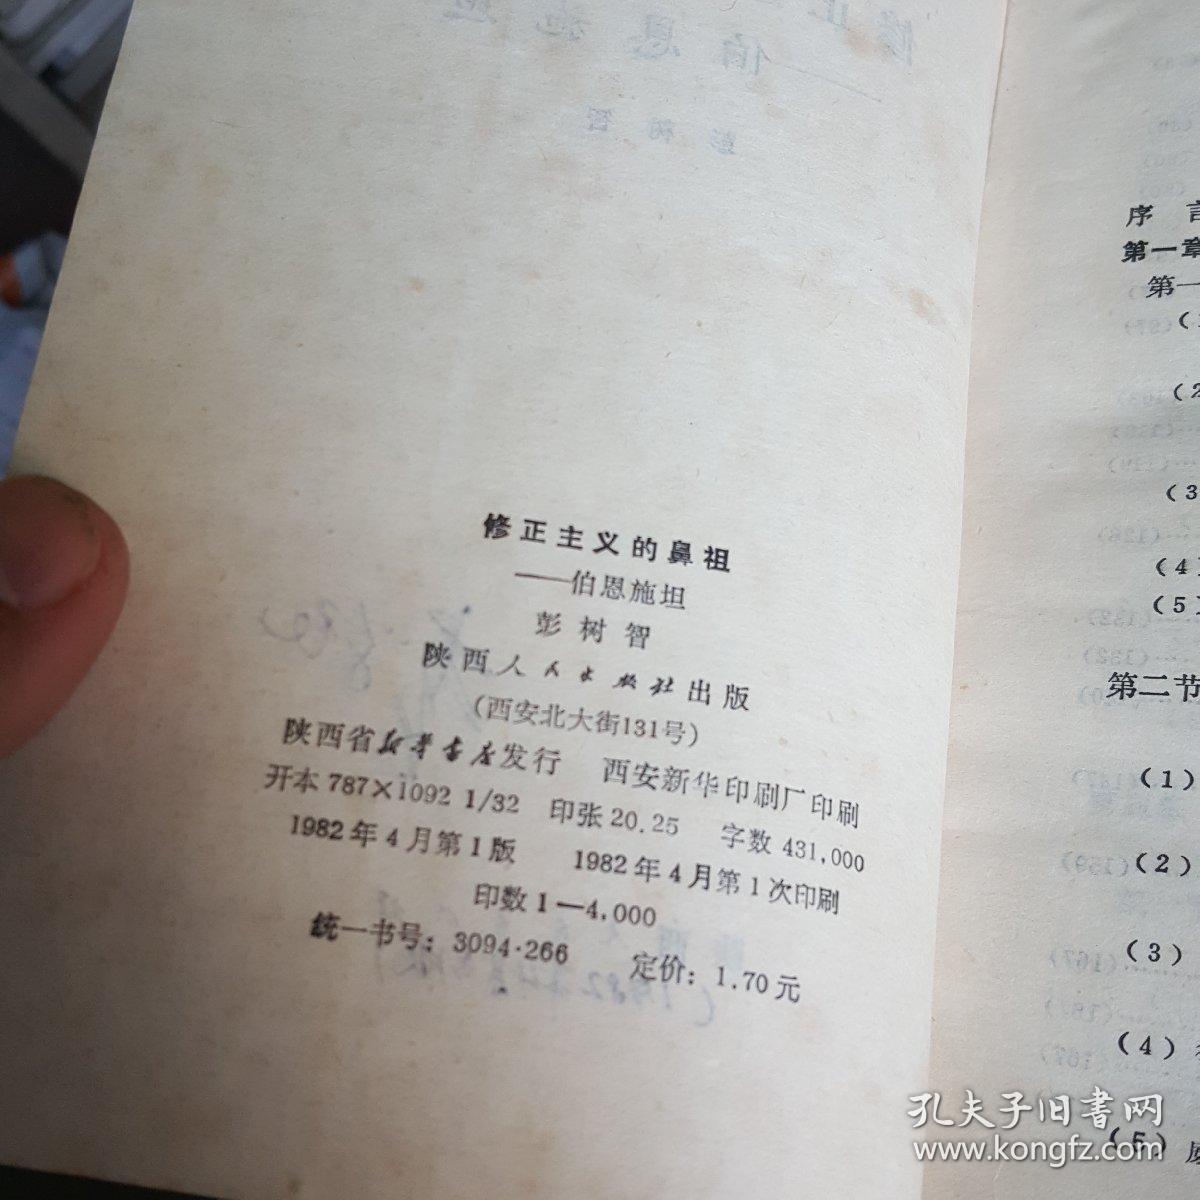 修正主义的鼻祖
——伯恩施坦
彭树智
陕西人民出版社出版
(西安北大街131号)
陕西省新华书店发行 西安新华印刷厂印刷
开本 787×1092 1/32 印张 20.25 字数 431,000
1982年4月第1版 1982年4月第1次印刷
印数 1—4,000
统一书号：3094·266 定价：1.70元
序 言
第一章
第一
(2
(3
(4)
(5)
第二节
(1)
(2)
(3)
(4)
(5)
孔夫子旧书网
www.kongfz.com